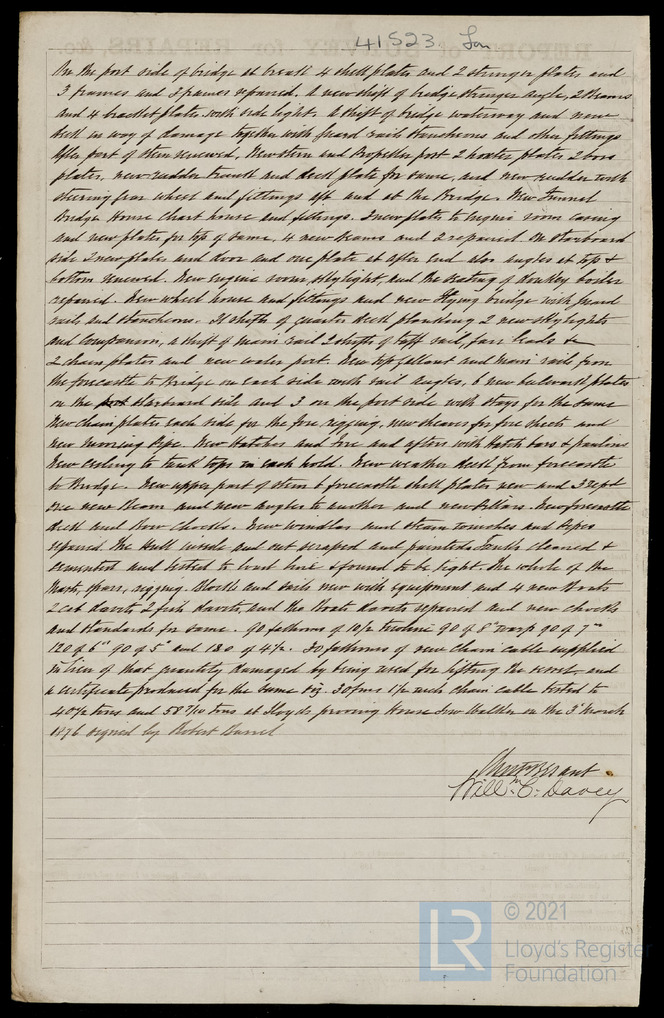 41523. Lon
On the port side of bridge at break 4 shell plates and 2 stringer plates and
3 frames and 3 frames repaired. A new shift of bridge stringer angle, 2 Beams
and 4 bracket plates with side light. A shift of bridge waterway and new
deck in way of damage together with guard rail stanchions and other fittings
After part of stem renewed, New stern and Propeller post 2 hoster plates 2 boss
plates, new rudder trunk and deck plate for same, and new rudder with
steering gear wheel and fittings aft and at the Bridge. New Funnel
Bridge House Chart house and fittings. 2 new plates to Engine room casing
and new plates for top of same, 4 new beams and 2 repaired On starboard
side 2 new plates and door and one plate at after end also angles at top &
bottom renewed. New Engine room, skylight, and the seating of donkey boiler
repaired. New wheel house and fittings and new Flying bridge with guard
rails and stanchions. 21 shifts of quarter deck planking 2 new skylights
and companion, a shift of main rail 2 shifts of taff rail, fair leads &
2 chain plates and new water port. New top gallant and main rail from
the forecastle to Bridge on each side with rail angles, 6 new bulwark plates
on the starboard side and 3 on the port side with stays for the same
New chain plates each side for the fore rigging, new sheaves for fore sheets and
new mooring Pipe. New Hatches and fore and afters with Hatch bars &
New ceiling to tank tops in each hold. New weather deck from forecastle
to Bridge. New upper part of stem 6 forecastle shell plates new and 3 repd
one new Beam and new angles to another and new Pillars. New forecastle
deck and Bow chocks. New windlass and steam winches and Pipes
repaired. The Hull inside and out scraped and painted. Tanks cleaned &
cemented and tested to load line & found to be tight. The whole of the
Masts, spars, rigging. Blocks and sails new with Equipment and 4 new Boats
2 cat davits, 2 fish davits, and the Boats davits repaired and new chocks
and standards for same. 90 fathoms of 10½ 90 of 8" warp 90 of 7"
120 of 6" 90 of 5" and 180 of 4½. 30 fathoms of new Chain cable supplied
in lieu of that quantity damaged by being used for lifting the vessel, and
a certificate produced for the same viz. 30 fms 1⅝ inch chain cable tested to
40½ tons and 58 7/10 tons at Lloyds proving House on the 3d March
1876 signed by Robert
Will.m C. Davey
© 2021
Lloyd's Register
Foundation
LR